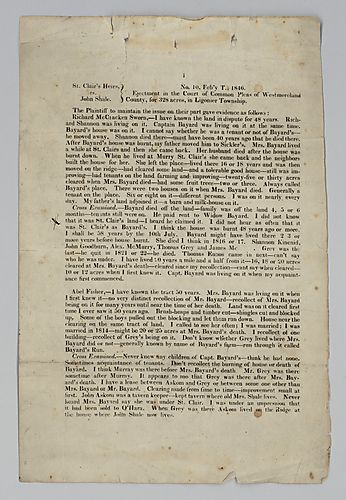 St. Clair's Heirs, No. 10, Feb'y T., 1846.
vs. Ejectment in the Court of Common Pleas of Westmoreland
John Shale. County, for 328 acres, in Ligonier Township.
The Plaintiff to maintain the issue on their part gave evidence as follows:
Richard McCracken Sworn,—I have known the land in dispute for 48 years. Rich-
ard Shannon was living on it. Captain Bayard was living on it at the same time.
Bayard's house was on it. I cannot say whether he was a tenant or not of Bayard's—
he moved away. Shannon died there—must have been 40 years ago that he died there.
After Bayard's house was burnt, my father moved him to Sickler's. Mrs. Bayard lived
a while at St. Clairs and then she came back. Her husband died after the house was
burnt down. When he lived at Murry St. Clair's she came back and the neighbors
built the house for her. She left the place—lived there 16 or 18 years and was then
moved on the ridge—had cleared some land—and a tolerable good house—still was im-
proving—had tenants on the land farming and improving—twenty-five or thirty acres
cleared when Mrs. Bayard died—had some fruit trees—two or three. Always called
Bayard's place. There were two houses on it when Mrs. Bayard died. Generally a
tenant on the place. Six or eight on it—different persons. I was on it nearly every
day. My father's land adjoined it—a barn and milk-house on it.
Cross Examined,—Bayard died off the land—family was off the land 4, 5 or 6
months—tenants still were on. He paid rent to Widow Bayard. I did not know
that it was St. Clair's land—I heard he claimed it. I did not hear as often that it
was St. Clair's as Bayard's. I think the house was burnt 48 years ago or more.
I shall be 58 years by the 10th July. Bayard might have lived there 2 3 or
more years before house burnt. She died I think in 1816 or 17. Shannon Kincad,
John Goodburn, Alex. McMurry, Thomas Grey and James Mc Grey was the
last—he quit in 1821 or 22—he died. Thomas Eacon came in next—can't say
who he was under. I have lived 10 years a mile and a half from it—16, 18 or 20 acres
cleared at Mrs. Bayard's death—cleared since my recollection—cant say when cleared—
10 or 12 acres when I first knew it. Capt. Bayard was living on it when my acquaint-
ance first commenced.
Abel Fisher,—I have known the tract 50 years. Mrs. Bayard was living on it when
I first knew it—no very distinct recollection of Mrs. Bayard—recollect of Mrs. Bayard
being on it for many years until near the time of her death. Land was on it cleared first
time I ever saw it 50 years ago. Brush-heaps and timber cut—shingles cut and blocked
up. Some of the boys pulled out the blocking and let them run down. House near the
clearing on the same tract of land. I called to see her often; I was married; I was
married in 1814—might be 20 or 25 acres at Mrs. Bayard's death. I recollect of one
building—recollect of Grey's being on it. Don't know whether Grey lived where Mrs.
Bayard did or not—generally known by name of Bayard's farm—run through it called
Bayard's Run.
Cross Examined.—Never knew any children of Capt. Bayard's—think he had none.
Sometimes acquaintance of tenants. Don't recollect the burning of house or death of
Bayard. I think Murray was there before Mrs. Bayard's death. Mr. Grey was there
sometime after Murray. It appears to me that Grey was there after Mrs. Bay-
ard's death. I have a lease between Askom and Grey or between some one other than
Mrs. Bayard or Mr. Bayard. Clearing made from time to time—improvement small at
first. John Askom was a tavern keeper—kept tavern where old Mrs. Shale lives. Never
heard Mrs. Bayard say she was under St. Clair. I was under an impression that
it had been sold to O'Hara. When Grey was there Askom lived on the Ridge at
the house where John Shale now lives.